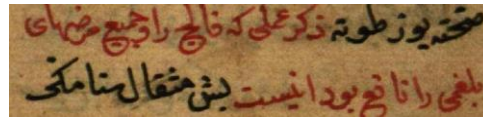 يوز طوته ذکر عملی که فالج را و جميع مرضهای
بلغمی را نافع بود اینست بش مثقال سنا مکی